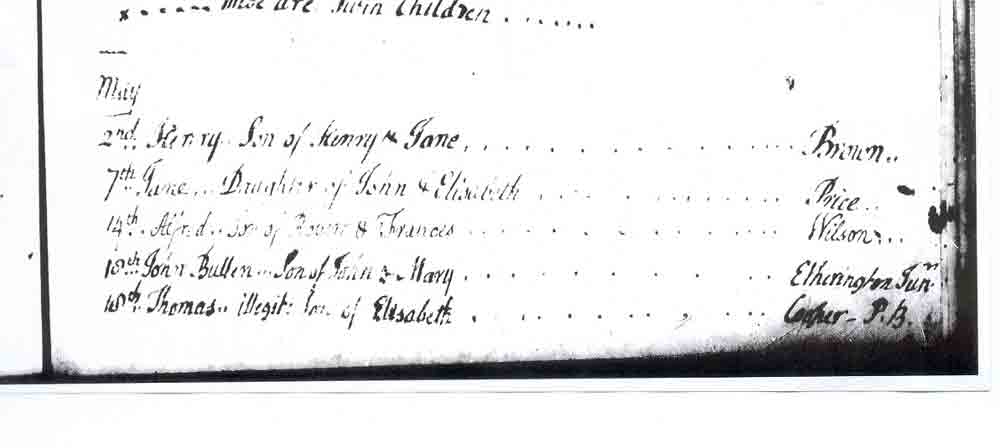 x...... These are Twin Children .......
May
2nd. Henry.. Son of Henry & Jane................ Brown..
7th. Jane... Daughter of John & Elisabeth........... Price..
14th. Alfred.. Son of & Frances............... Wilson...
18th. John Bullen... Son of John & Mary............... Etherington Junr
18th. Thomas.. illegit: Son of Elisabeth............ P.B.